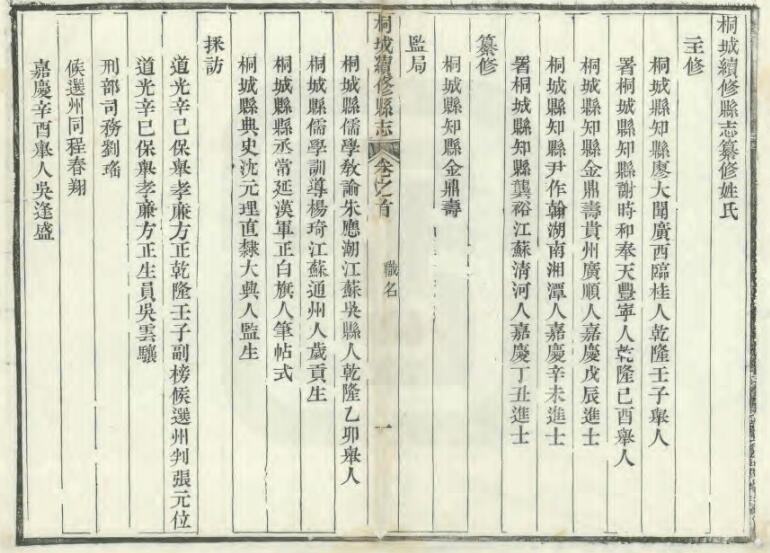 桐城續修縣志纂修姓氏
主修
桐城縣知縣廖大聞廣西臨桂人乾隆壬子舉人
署桐城縣知縣謝時和奉天豐寧人乾隆己酉舉人
桐城縣知縣金鼎壽貴州廣順人嘉慶戊辰進士
桐城縣知縣尹作翰湖南湘潭人嘉慶辛未進士
署桐城縣知縣龔裕江蘇清河人嘉慶丁丑進士
纂修
桐城縣知縣金鼎壽
監局
桐城續修縣志
卷之首
職名
一
桐城縣儒學教諭朱應潮江蘇吳縣人乾隆乙卯舉人
桐城縣儒學訓導楊琦江蘇通州人歲貢生
桐城縣縣丞常延漢軍正白旗人筆帖式
桐城縣典史沈元理直隸大興人監生
採訪
道光辛巳保舉孝廉方正乾隆壬子副榜候選州判張元位
道光辛巳保舉孝廉方正生員吳雲驤
刑部司務劉瑤
候選州同程春翔
嘉慶辛酉舉人吳逢盛